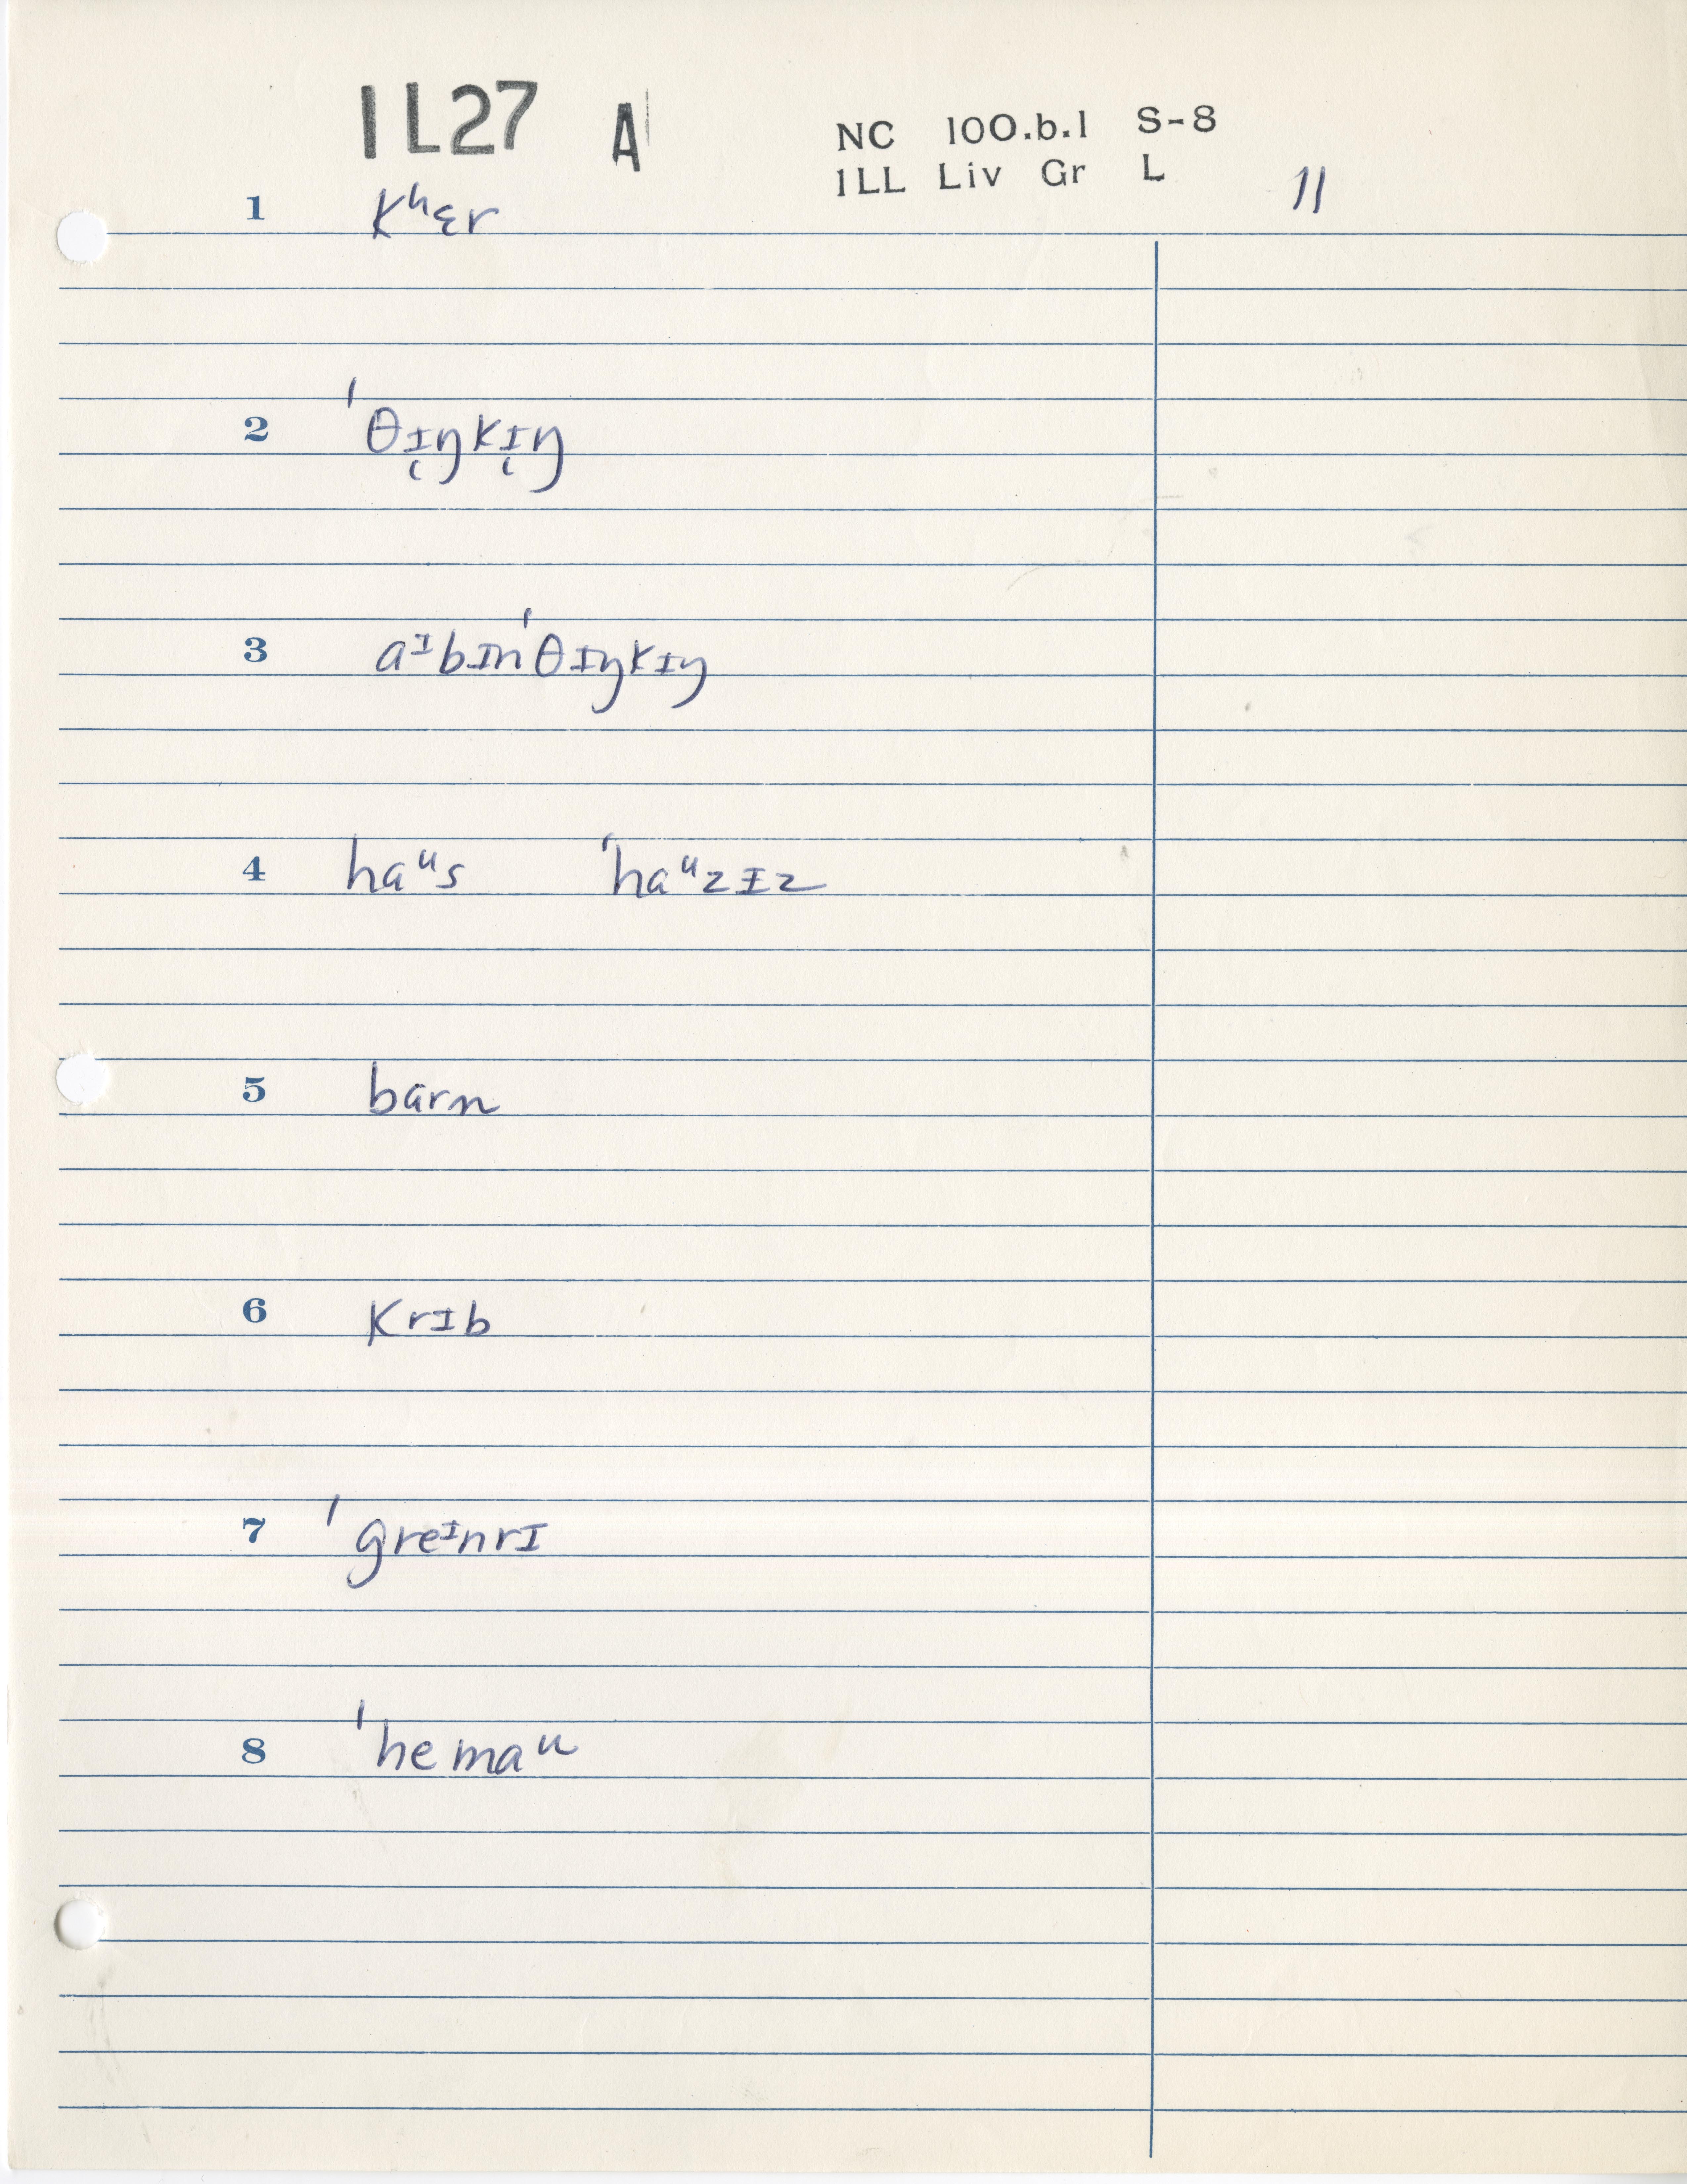 1L27 A
NC 100.b.1 S-8
1LL Liv Gr L
11
1 Kʰɛr
2 ˈθɪ̜ŋkɪ̜ŋ
3 aᶦbɪnˈθɪŋkɪŋ
4 haᵘs ˈhaᵘzɪz
5 barn
6 krɪb
7 ˈgreᶦnrɪ
8 ˈhemaᵘ